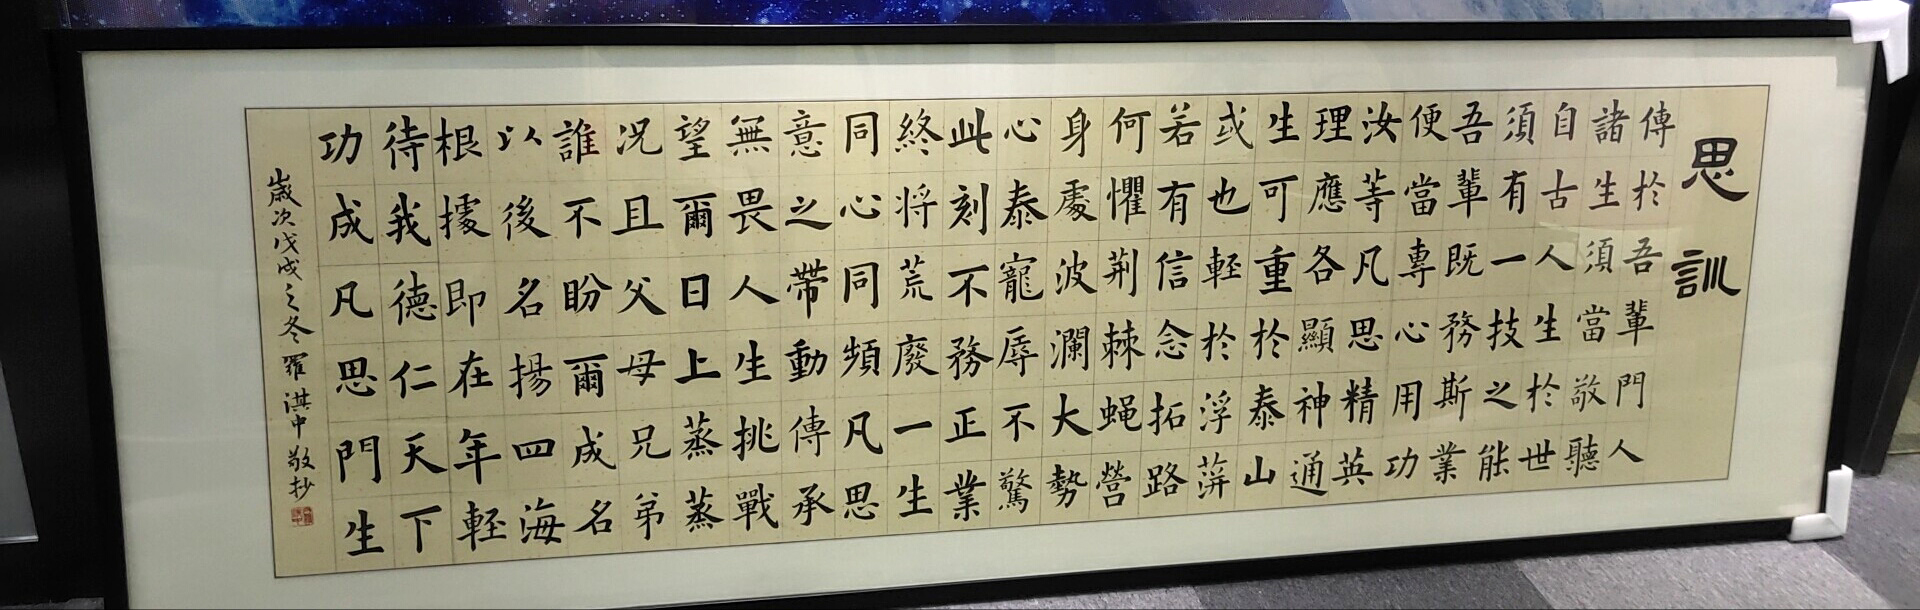 思訓
傳於吾輩門人
諸生須當敬聽
自古人生於世
須有一技之能
吾輩既務斯業
便當專心用功
汝等凡思精英
理應各顯神通
生可重於泰山
或也輕於浮萍
若有信念拓路
何懼荆棘蝇營
身處波瀾大勢
心泰寵辱不驚
此刻不務正業
終将荒廢一生
同心同頻凡思
意之帶動傳承
無畏人生挑戰
望爾日上蒸蒸
况且父母兄弟
誰不盼爾成名
以後名揚四海
根據即在年輕
待我德仁天下
功成凡思門生
歲次戊戌之冬羅淇中敬抄